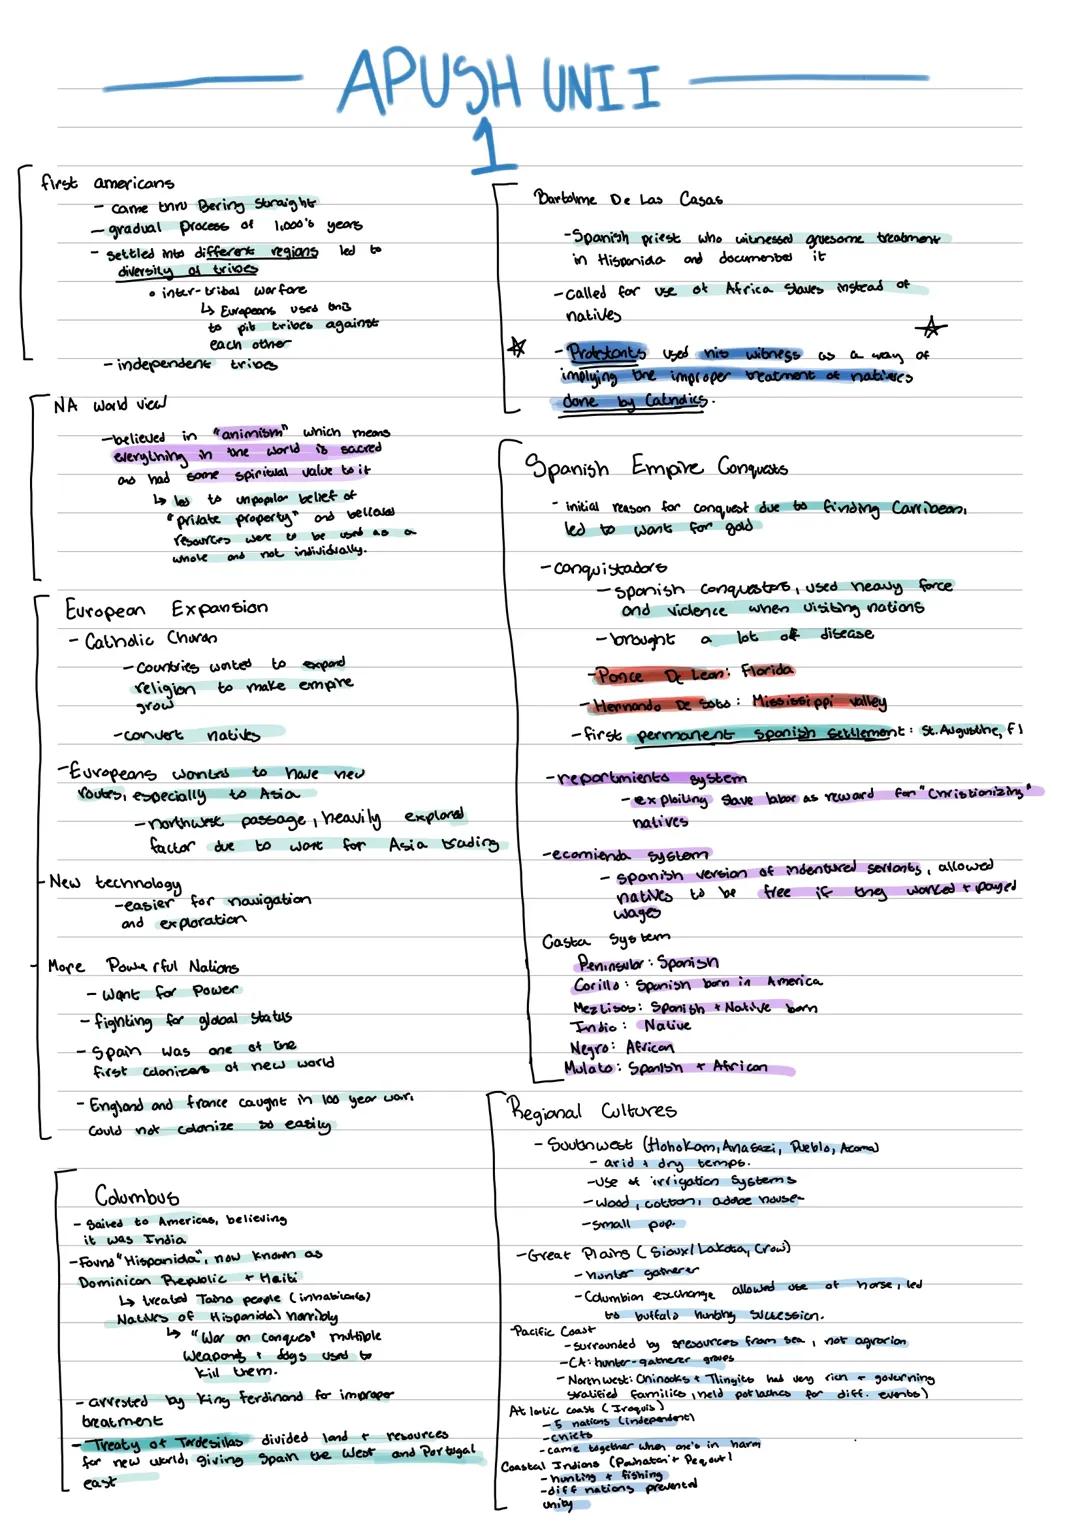 APUSH UNIT
1
first americans
- came thru Bering Straight
- gradual process of 1,000's years
- settled into different regions led to
diversity of tribes
• inter-tribal warfare
↳ Europeans used this
to pit tribes against
each other
- independent tribes
NA World view
- believed in "animism" which means
everything in the world is sacred
and had some spiritual value to it
↳ led to unpopular belief of
"private property" and believed
resources were to be used as a
whole and not individually.
European Expansion
- Catholic Church
- Countries wanted to expand
religion to make empire
grow
- convert natives
- Europeans wanted to have new
routes, especially to Asia
- northwest passage, heavily explored
factor due to want for Asia trading
- New technology
- easier for navigation
and exploration
- More Powerful Nations
- Want for power
- fighting for global status
- Spain was one of the
first colonizers of new world
- England and france caught in 100 year war,
could not colonize so easily
Columbus
- Sailed to Americas, believing
it was India
- Found "Hispanida", now known as
Dominican Republic + Haiti
↳ treated Taino people (inhabitants)
Natives of Hispanida) horribly
↳ "War on Conques" multiple
weapons & dogs used to
kill them.
- arrested by King Ferdinand for improper
treatment
- Treaty of Tordesillas divided land + resources
for new world, giving Spain the West and Portugal
east
Bartolme De Las Casas
- Spanish priest who witnessed gruesome treatment
in Hispanida and documented it
- called for use of Africa slaves instead of
natives
- Protestants used his witness as a way of
implying the improper treatment of natives
done by Catholics.
Spanish Empire Conquests
- initial reason for conquest due to finding Carribean,
led to want for gold
- conquistadors
- spanish conquestors, used heavy force
and violence when visiting nations
- brought a lot of disease
- Ponce De Leon: Florida
- Hernando De Soto: Mississippi valley
- first permanent spanish settlement: St. Augustine, Fl
- repartmiento system
- exploiting slave labor as reward for "Christionizing"
natives
- ecomienda system
- spanish version of indentured servants, allowed
natives to be free if they worked + payed
wages
Casta System
Peninsular: Spanish
Corillo: Spanish born in America
Meztisos: Spanish + Native born
Indio: Native
Negro: African
Mulato: Spanish + African
Regional Cultures
- Southwest (Hohokam, Anasazi, Pueblo, Acoma)
- arid & dry temps.
- use of irrigation systems
- wood, cotton, adobe house
- small pop.
- Great Plains (Sioux/Lakota, Crow)
- hunter gatherer
- Columbian exchange allowed use of horse, led
to buffalo hunting succession.
- Pacific Coast
- surrounded by resources from sea, not agrarian
- CA: hunter-gatherer groups
- Northwest: Chinooks + Tlingits had very rich + governing
stratified families, held potlaches for diff. events)
Atlantic coast (Iroquis)
- 5 nations (independent)
- chiefs
- came together when one's in harm
Coastal Indians (Powhatan + Pequot)
- hunting + fishing
- diff nations prevented
unity